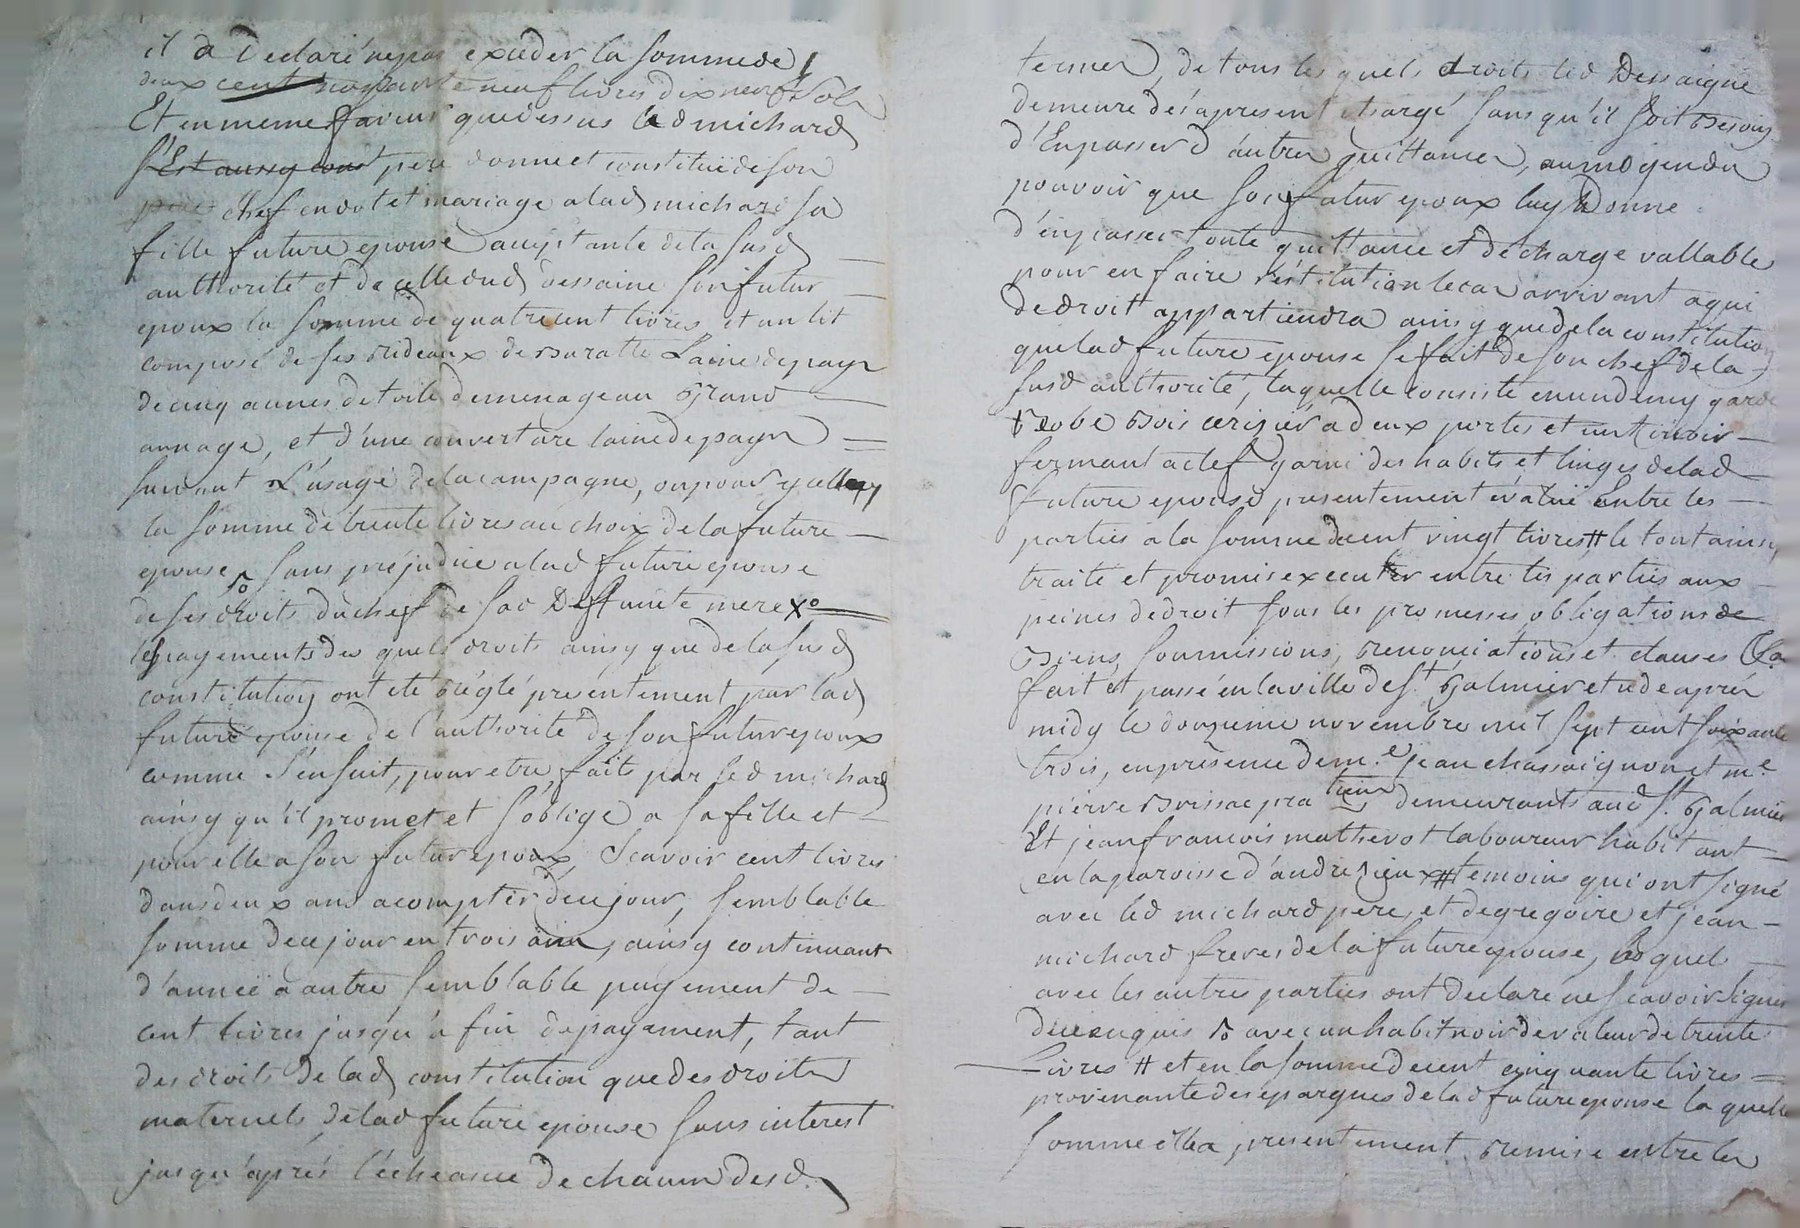 il a declaré ne pas exceder la somme de
deux cent soixante neuf livres dix neuf sols
Et en meme faveur que dessus led michard
s'Est aussy cons pere donne et constitüe de son
chef en dot et mariage a lad michard sa
fille future epouse acceptante de la susd
authorité et de celle dud dessaine son futur
epoux la somme de quatre cent livres, et un lit
composé de ses rideaux de buratte Laine de pays
de cinq aunes de toile de menage au Grand
aunage, et d'une couverture laine de pays
suivant L'usage de la campagne, ou pour ycelluy
la somme de trente livres au choix de la future
epouse, sans prejudice a lad future epouse
de ses droits du chef de sad deffunte mere xo
les payements des quels droits ainsy que de la susd
constitution ont été réglé présentement par lad
future epouse de l'authorité de son futur epoux
comme s'ensuit, pour etre faits par led michard
ainsy qu'il promet et s'oblige a sa fille et
pour elle a son futur epoux, Scavoir cent livres
dans deux ans a compter de ce jour, semblable
somme de ce jour en trois ans, ainsy continuant
d'année a autre semblable payement de
cent livres jusqu'a fin de payement, tant
des droits de lad constitution que des droits
maternels de lad future epouse sans interest
jusqu'après l'échéance de chacun desd.
termes, de tous les quels droits led Dessaigne
demeure dés apresent chargé sans qu'il soit besoin
d'En passer d'autres quittances, au moyen du
pouvoir que son futur epoux luy Donne
d'en passer toute quittance et décharge vallable
pour en faire réstitution le cas arrivant a qui
de droit appartiendra ainsy que de la constitution
que lad future epouse se fait de son chef de la
susd authorité, laquelle consiste en un demy garde
Robe Bois cerisier a deux portes et un tiroir
fermant a clef garni des habits et linges de lad
future epouse présentement évalué Entre les
parties a la somme de cent vingt livres # le tout ainsy
traité et promis executer entre les parties aux
peines de droit sous les promesses obligations de
Biens, soumissions, renonciations et clauses
fait et passé en la ville de St Galmier etude après
midy le douzieme novembre mil sept cent soixante
trois, en présence de me jean chassaignon et me
pierre Brissac praticiens demeurants aud St. Galmier
Et jean francois matherot laboureur habitant
en la paroisse d'andrezieux # temoins qui ont signé
avec led michard pere, et de gregoire et jean
michard freres de la future epouse, les quels
avec les autres parties ont declaré ne scavoir signer
de ce enquis avec un habit noir de valeur de trente
livres # et en la somme de cent cinquante livres
provenante des epargnes de lad future epouse la quelle
somme elle a présentement remise entre les